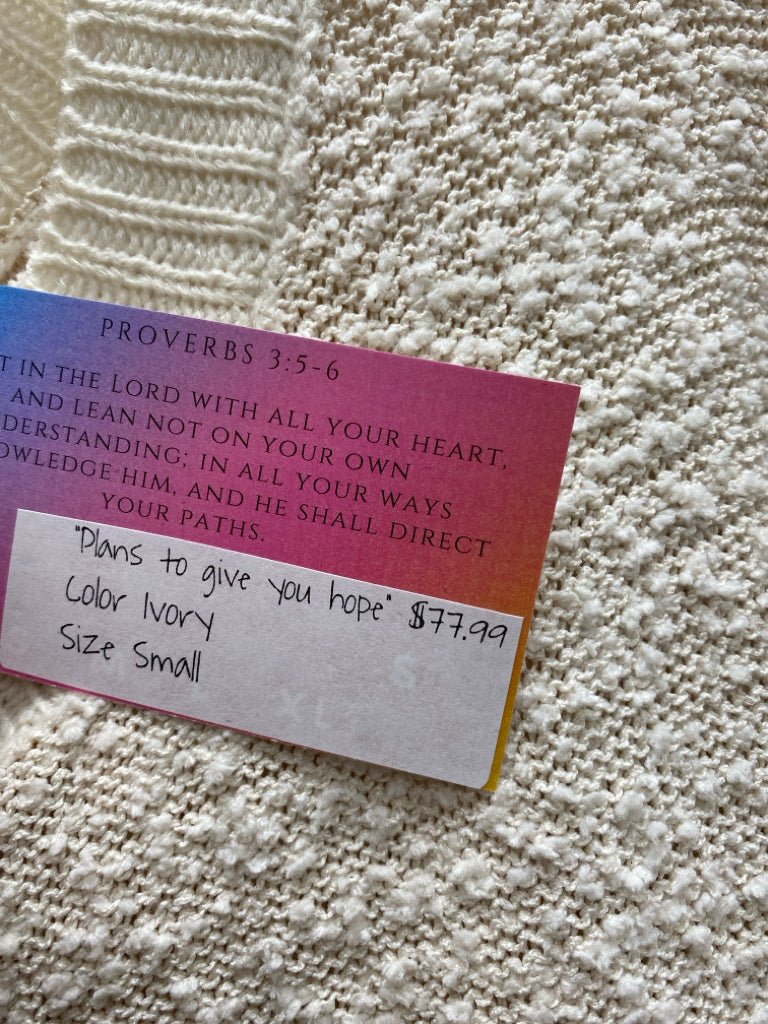 PROVERBS 3:5-6
T IN THE LORD WITH ALL YOUR HEART,
AND LEAN NOT ON YOUR OWN
DERSTANDING; IN ALL YOUR WAYS
OWLEDGE HIM, AND HE SHALL DIRECT
YOUR PATHS.
"Plans to give you hope" $77.99
Color Ivory
Size Small
S
XL